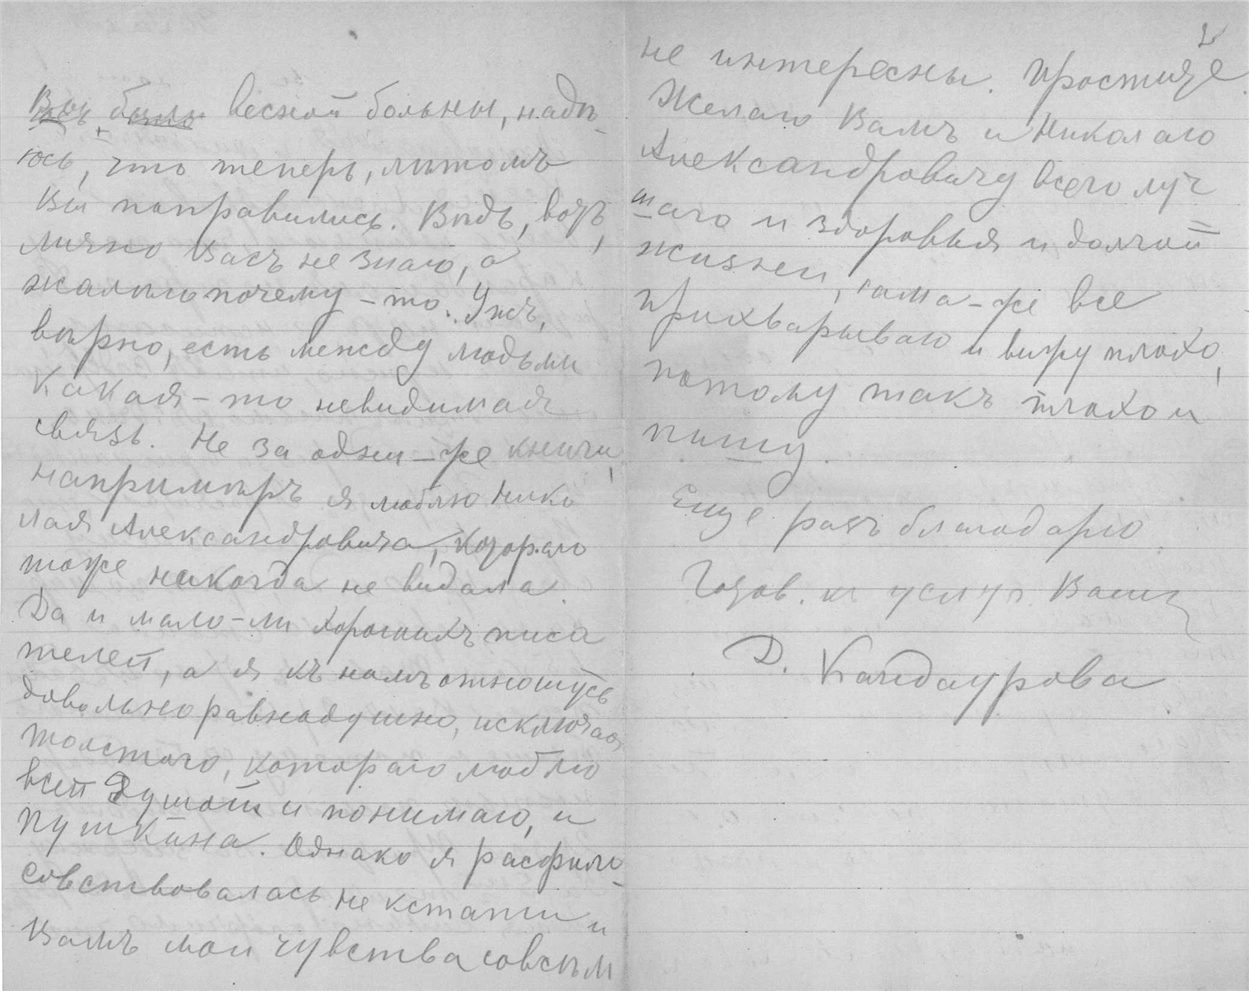 Вы были весной больны, надѣ-
юсь, что теперь, лѣтомъ
Вы поправились. Вѣдь, вотъ,
лично Васъ не знаю, а
жалко почему-то. Ужъ,
вѣрно, есть между людьми
какая-то невидимая
связь. Не за одни-же книги,
напримѣръ я люблю Нико
лая Александровича, котораго
тоже никогда не видала.
Да и мало-ли хорошихъ писа
телей, а я къ нимъ отношусь
довольно равнодушно, исключая
Толстого, котораго люблю
всей душой и понимаю, и
Пушкина. Однако я расфило-
совствовалась не кстати и
Вамъ мои чувства совсѣмъ
2
не интересны. Простите.
Желаю Вамъ и Николаю
Александровичу всего луч
шаго и здоровья и долгой
жизни, сама-же все
прихварываю и вижу плохо,
потому такъ плохо и
пишу.
Еще разъ благодарю.
Готов. къ услуг. Ваш
Д. Кандаурова